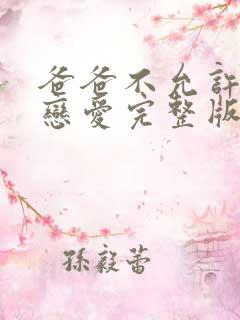 爸爸不允許
戀愛完整版
孫毅蕾